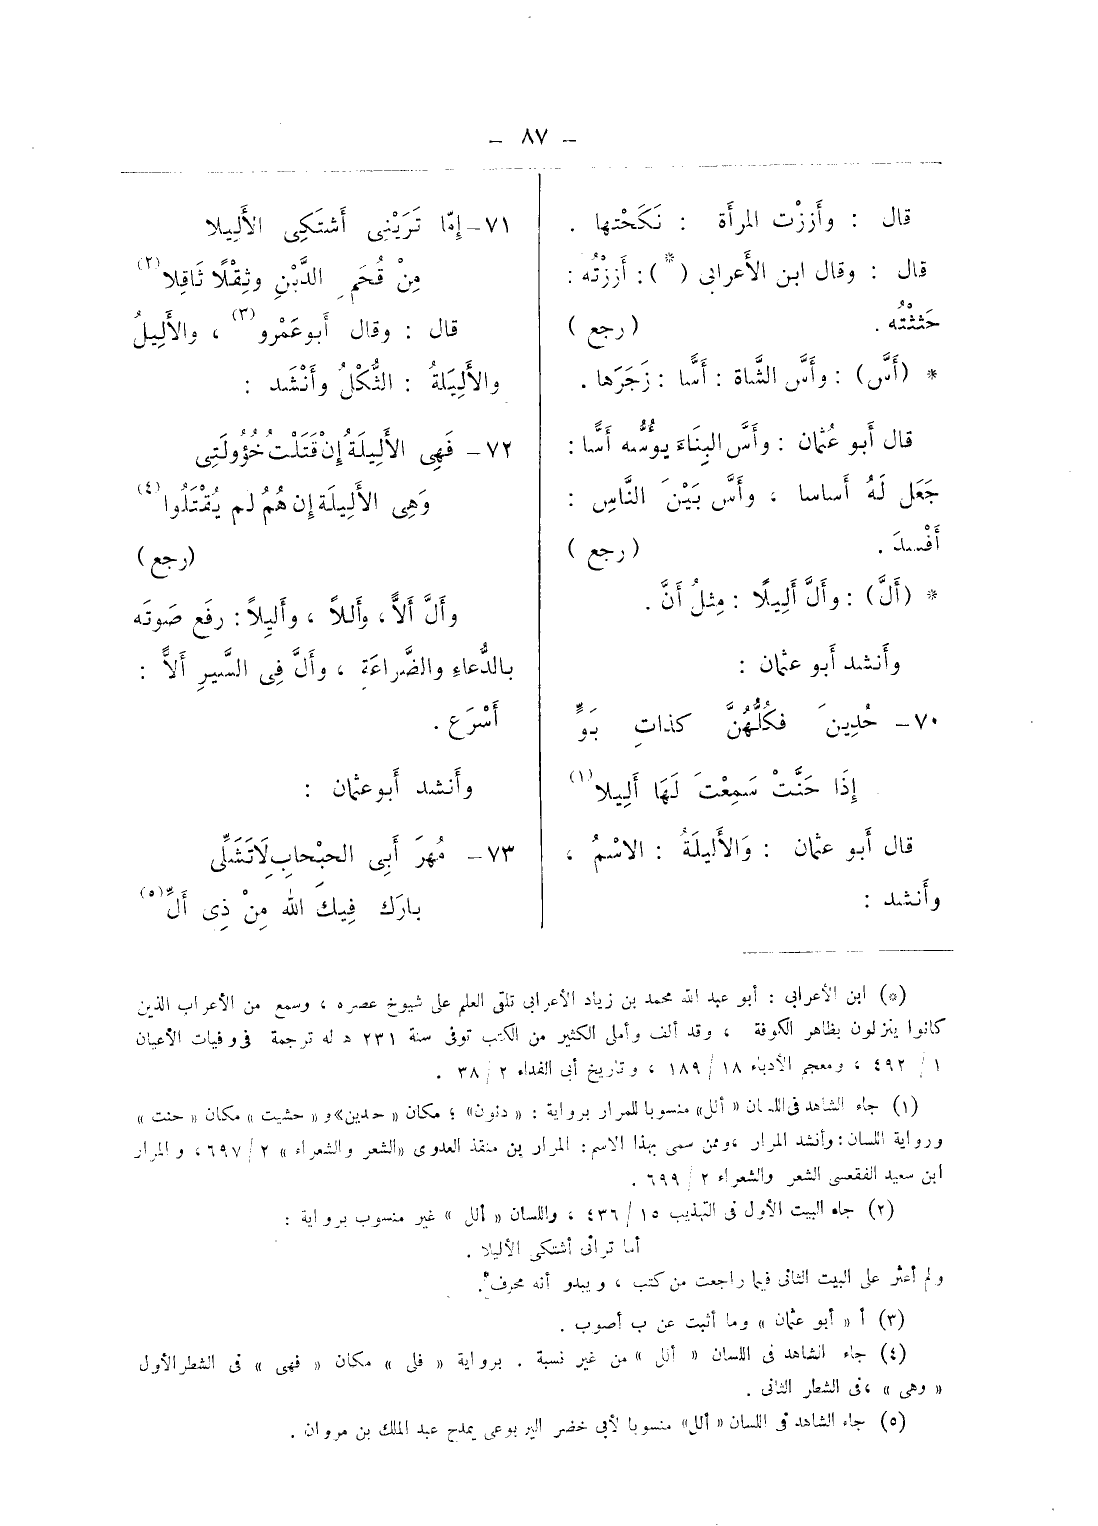 - ٨٧ -
قال : وأَززْت المرأَة : نَكَحْتها .
قال : وقال ابن الأَعرابى (*) : أَززْتُه :
حَثثْتُه . ( رجع )
* (أَسَّ) : وأَسَّ الشَّاة : أَسًّا : زَجَرَها .
قال أَبو عُثمان : وأَسَّ البِنَاءَ يؤُسُّه أَسًّا :
جَعَل لَهُ أَساسا ، وأَسَّ بَيْنَ النَّاسِ :
أَفْسدَ . ( رجع )
* (أَلَّ) : وأَلَّ أَلِيلًا : مِثلُ أَنَّ .
وأَنشد أَبو عثمان :
٧٠- حُدِينَ فكُلُّهُنَّ كذاتِ بَوٍّ
إِذَا حَنَّتْ سَمِعْتَ لَهَا أَلِيلا (١)
قال أَبو عثمان : وَالأَلِيلَةُ : الاسْمُ ،
وأَنشد :
٧١- إِمَّا تَرَيْنِى أَشتَكِى الأَلِيلا
مِنْ قُحَمِ الدَّيْنِ وثِقْلًا ثَاقِلا (٢)
قال : وقال أَبو عَمْرو (٣) ، والأَلِيلُ
والأَلِيلَةُ : الثُّكْلُ وأَنْشَد :
٧٢- فَهِى الأَلِيلَةُ إِنْ قَتَلْتُ خُؤُولَتِى
وَهِى الأَلِيلَة إِن هُمُ لم يُقْتَلُوا (٤)
(رجع)
وأَلَّ أَلاًّ ، وأَللاً ، وأَلِيلاً : رفَع صَوتَه
بالدُّعاءِ والضَّراعَةِ ، وأَلَّ فِى السَّيرِ أَلاًّ :
أَسْرَع .
وأَنشد أَبو عثمان :
٧٣- مُهرَ أَبِى الحبْحابِ لَا تَشَلِّى
بارَك فِيكَ الله مِنْ ذِى أَلِّ (٥)
(*) ابن الأعرابى : أبو عبد الله محمد بن زياد الأعرابى تلقى العلم على شيوخ عصره ، وسمع من الأعراب الذين
كانوا ينزلون بظاهر الكوفة ، وقد ألف وأملى الكثير من الكتب توفى سنة ٢٣١ ه له ترجمة فى وفيات الأعيان
١ / ٤٩٢ ، ومعجم الأدباء ١٨ / ١٨٩ ، وتاريخ أبى الفداء ٢ / ٣٨ .
(١) جاء الشاهد فى اللسان « ألل» منسوبا للمرار برواية : « دنون» ؛ مكان « حدين» و « حشيت » مكان « حنت »
ورواية اللسان : وأنشد المرار ، وممن سمى بهذا الاسم : المرار بن منقذ العدوى «الشعر والشعراء » ٢ / ٦٩٧ ، والمرار
ابن سعيد الفقعسى الشعر والشعراء ٢ / ٦٩٩ .
(٢) جاء البيت الأول فى التهذيب ١٥ / ٤٣٦ ، واللسان « ألل » غير منسوب برواية :
أما ترانى أشتكى الأليلا .
ولم أعثر على البيت الثانى فيما راجعت من كتب ، ويبدو أنه محرف .
(٣) أ « أبو عثمان » وما أثبت عن ب أصوب .
(٤) جاء الشاهد فى اللسان « ألل » من غير نسبة . برواية « فلى » مكان « فهى » فى الشطر الأول
« وهى » ، فى الشطر الثانى .
(٥) جاء الشاهد فى اللسان « ألل» منسوبا لأبى خضر اليربوعى يمدح عبد الملك بن مروان .